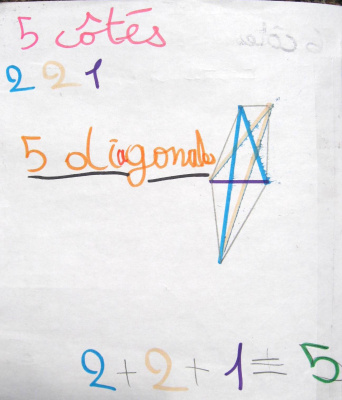 5 côtés
2 2 1
5 diagonales
2 + 2 + 1 = 5